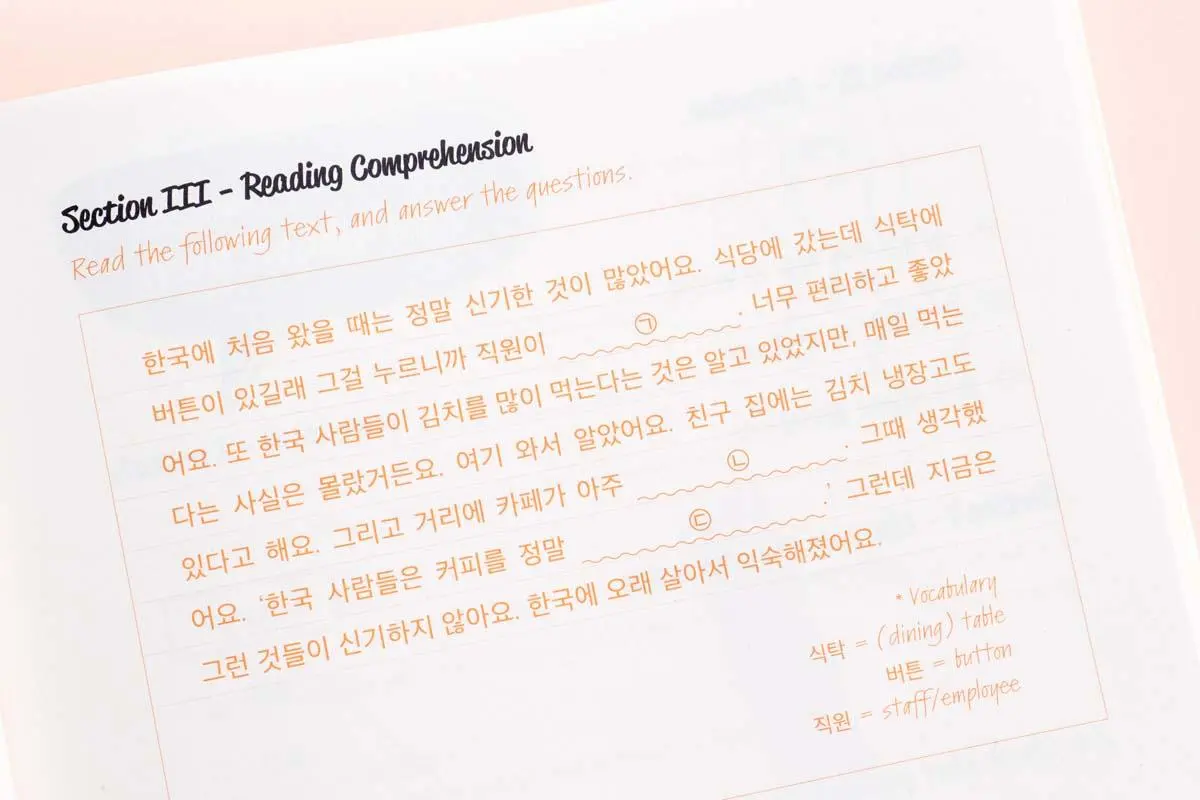 Section III - Reading Comprehension
Read the following text, and answer the questions.
한국에 처음 왔을 때는 정말 신기한 것이 많았어요. 식당에 갔는데 식탁에
버튼이 있길래 그걸 누르니까 직원이 ㉠. 너무 편리하고 좋았
어요. 또 한국 사람들이 김치를 많이 먹는다는 것은 알고 있었지만, 매일 먹는
다는 사실은 몰랐거든요. 여기 와서 알았어요. 친구 집에는 김치 냉장고도
있다고 해요. 그리고 거리에 카페가 아주 ㉡. 그때 생각했
어요. ‘한국 사람들은 커피를 정말 ㉢.’ 그런데 지금은
그런 것들이 신기하지 않아요. 한국에 오래 살아서 익숙해졌어요.
* Vocabulary
식탁 = (dining) table
버튼 = button
직원 = staff/employee